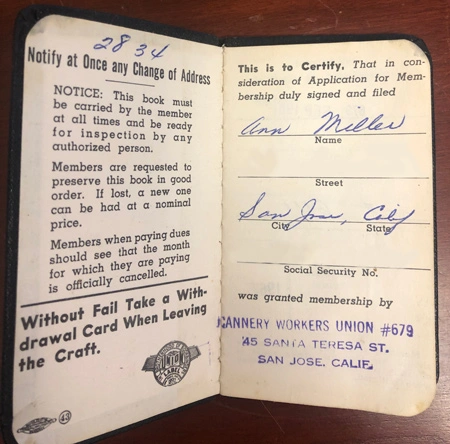 2834
Notify at Once any Change of Address
NOTICE: This book must
be carried by the member
at all times and be ready
for inspection by any
authorized person.
Members are requested to
preserve this book in good
order. If lost, a new one
can be had at a nominal
price.
Members when paying dues
should see that the month
for which they are paying
is officially cancelled.
Without Fail Take a With-
drawal Card When Leaving
the Craft.
LABEL
43
This is to Certify, That in con-
sideration of Application for Mem-
bership duly signed and filed
Ann Miller
Name
Street
San Jose, Calif
City State
Social Security No.
was granted membership by
CANNERY WORKERS UNION #679
45 SANTA TERESA ST.
SAN JOSE, CALIF.